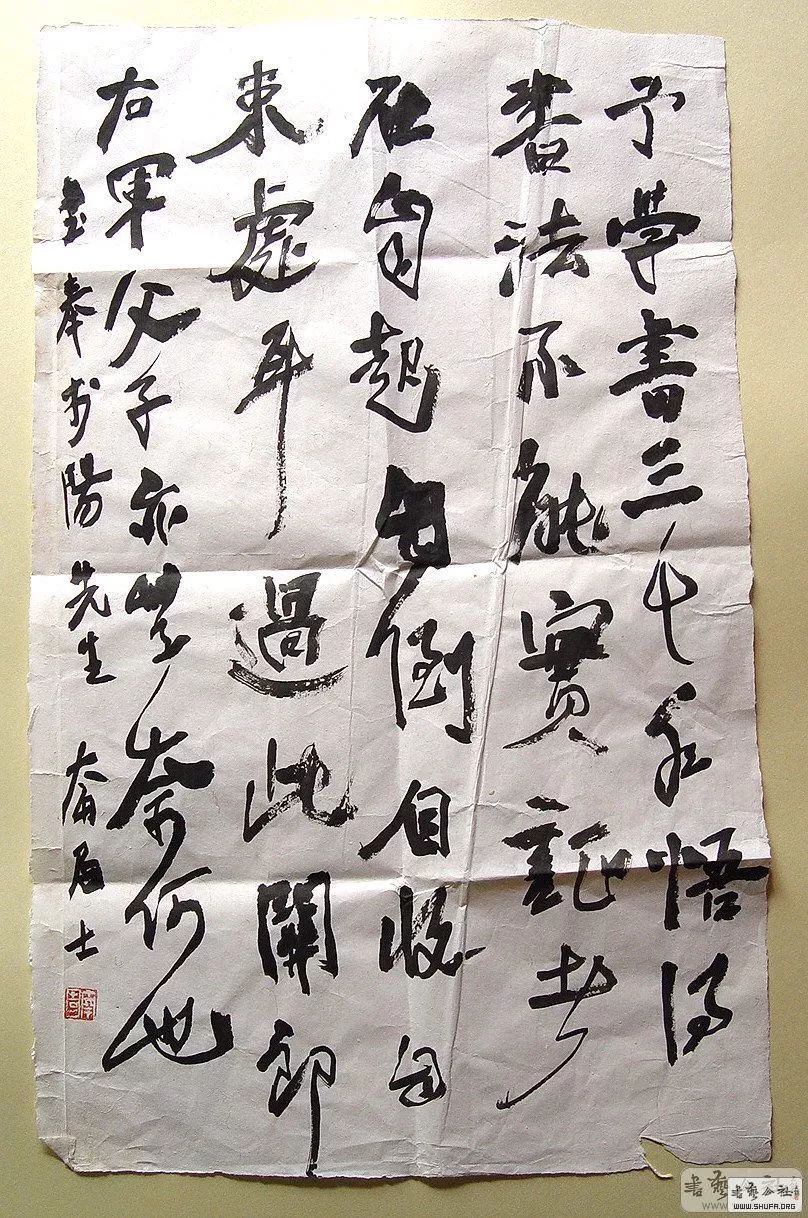 予學書三十年悟得
書法不能實証者
在自起自倒自收自
束處耳過此關即
右軍父子亦無奈何也
奉 陽先生 居士
書藝公社
WWW.SHUFA.ORG